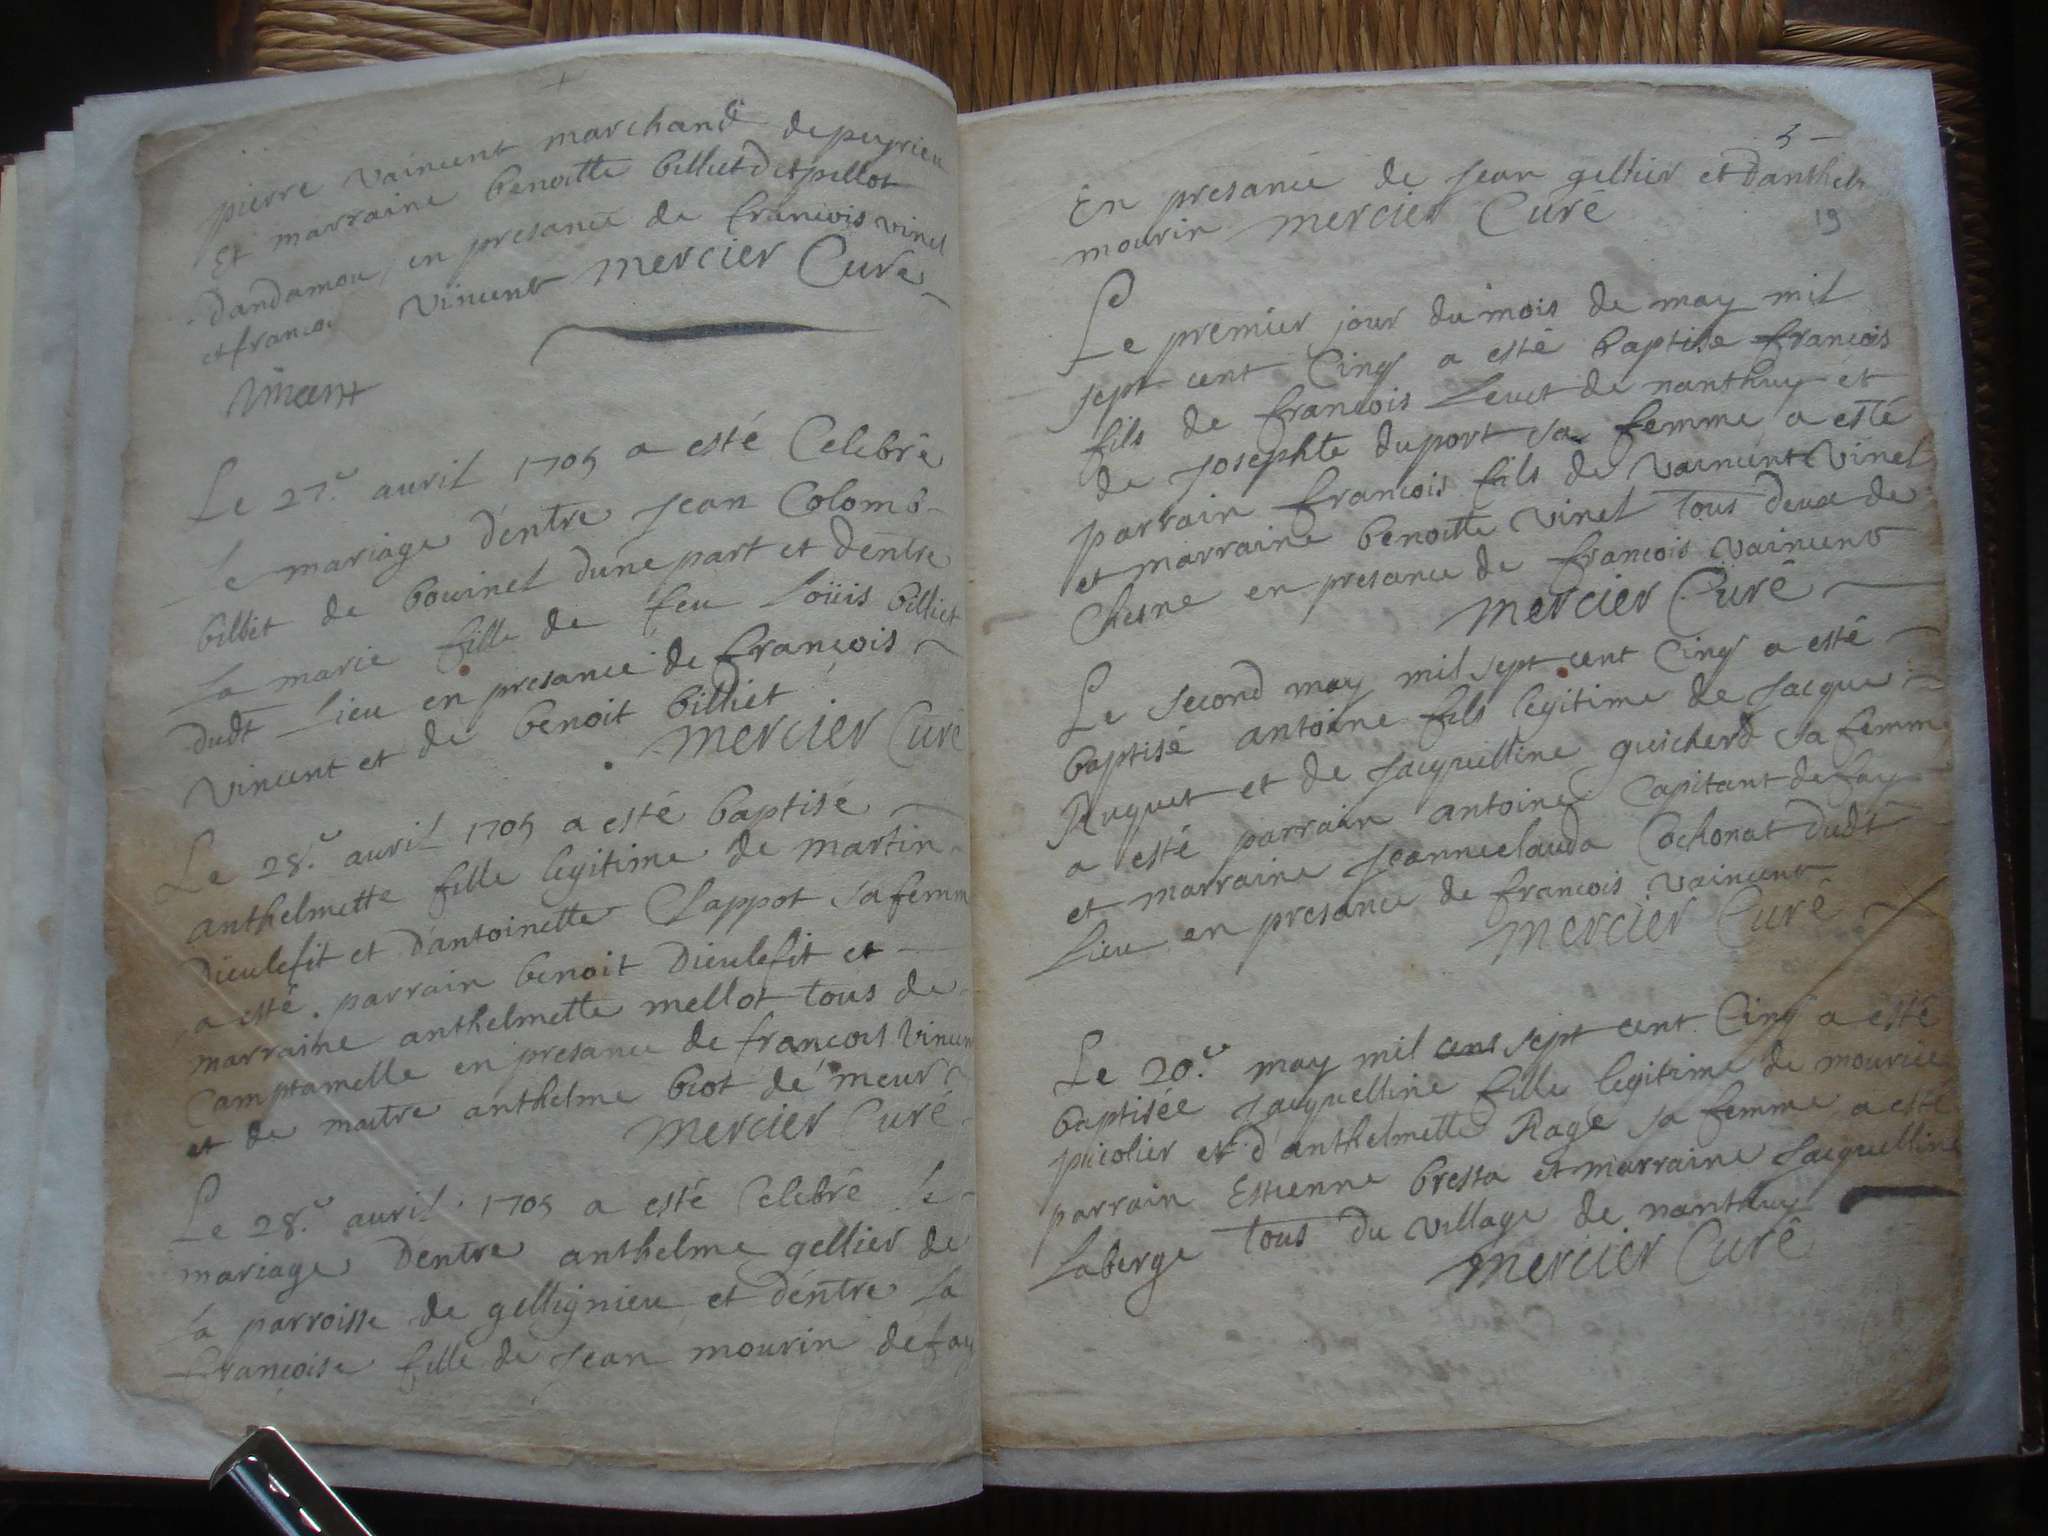 pierre vaincent marchand de peyrieu
Et marraine benoitte billiet dit pillot
dandamou, en presance de francois vinet
et francoi vincent mercier Curé
Vincent
Le 27.e auril 1705 a esté Celebré
Le mariage d'entre Jean Colomb
billiet de bouinel d'une part et d'entre
La marie fille de feu Loüis billiet
dudt Lieu en presance de françois
Vincent et de benoit billiet
mercier Curé
Le 28.e auril 1705 a esté baptisé
anthelmette fille legitime de martin
Dieulefit et d'antoinette Clappot sa femm
a esté parrain benoit Dieulefit et
marraine anthelmette mellot tous de
Camptamelle en presance de francois Vincen
et de maitre anthelme biot de meur
mercier Curé
Le 28.e auril 1705 a esté Celebré le
mariage D'entre anthelme gellier de
La parroisse de gellignieu et d'entre La
françoise fille de Jean mourin de fay
5
En presance de Jean gellier et d'anthelm
mourin mercier Curé
19
Le premier jour du mois de may mil
sept cent Cinq a esté baptise françois
fils de françois Leuet de nanthuy et
de Josephte duport sa femme a esté
parrain francois fils de Vaincent Vinet
et marraine benoitte vinet tous deux de
Chesne en presance de francois Vaincent
mercier Curé
Le second may mil sept cent Cinq a esté
baptisé antoine fils legitime de Jacque
Ruquet et de Jacquelline guicherd sa femme
a esté parrain antoine Capitant de fay
et marraine Jeanneclauda Cochonat dudt
Lieu en presance de francois Vaincent
mercier Curé
Le 20.e may mil cens sept cent Cinq a esté
baptisée Jacquelline fille legitime de mourice
picolier et d'anthelmette Rage sa femme a esté
parrain Estienne bresta et marraine Jacquelline
Laberge tous du village de nanthuy
mercier Curé